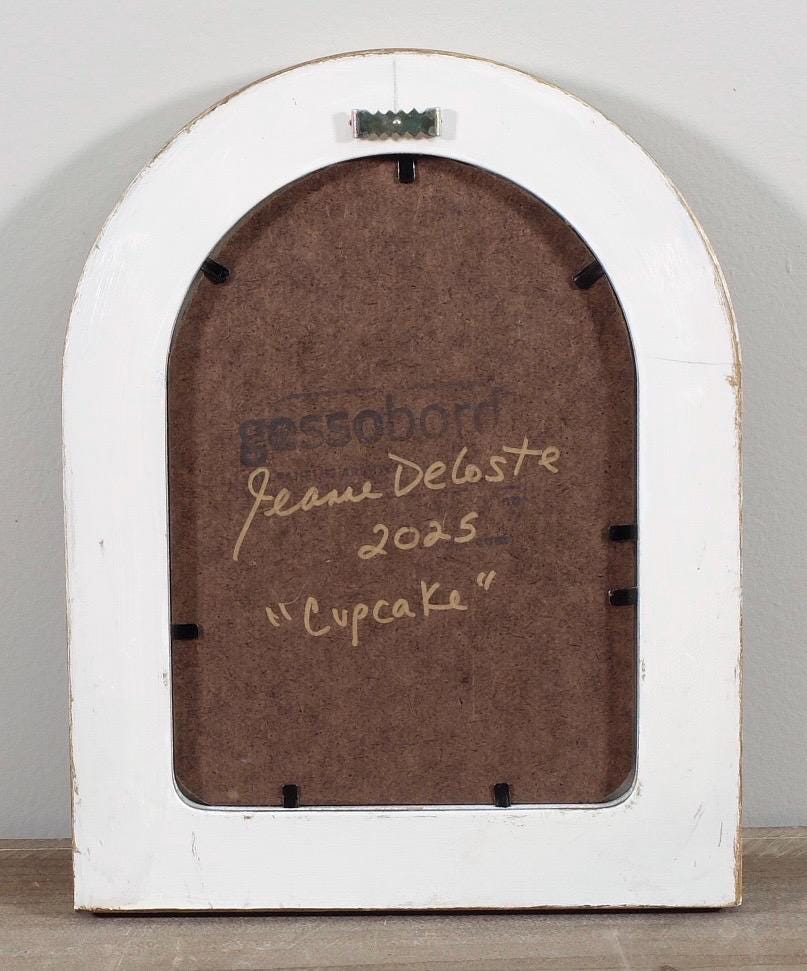 gessobord
Jeanne DeCoste
2025
"Cupcake"